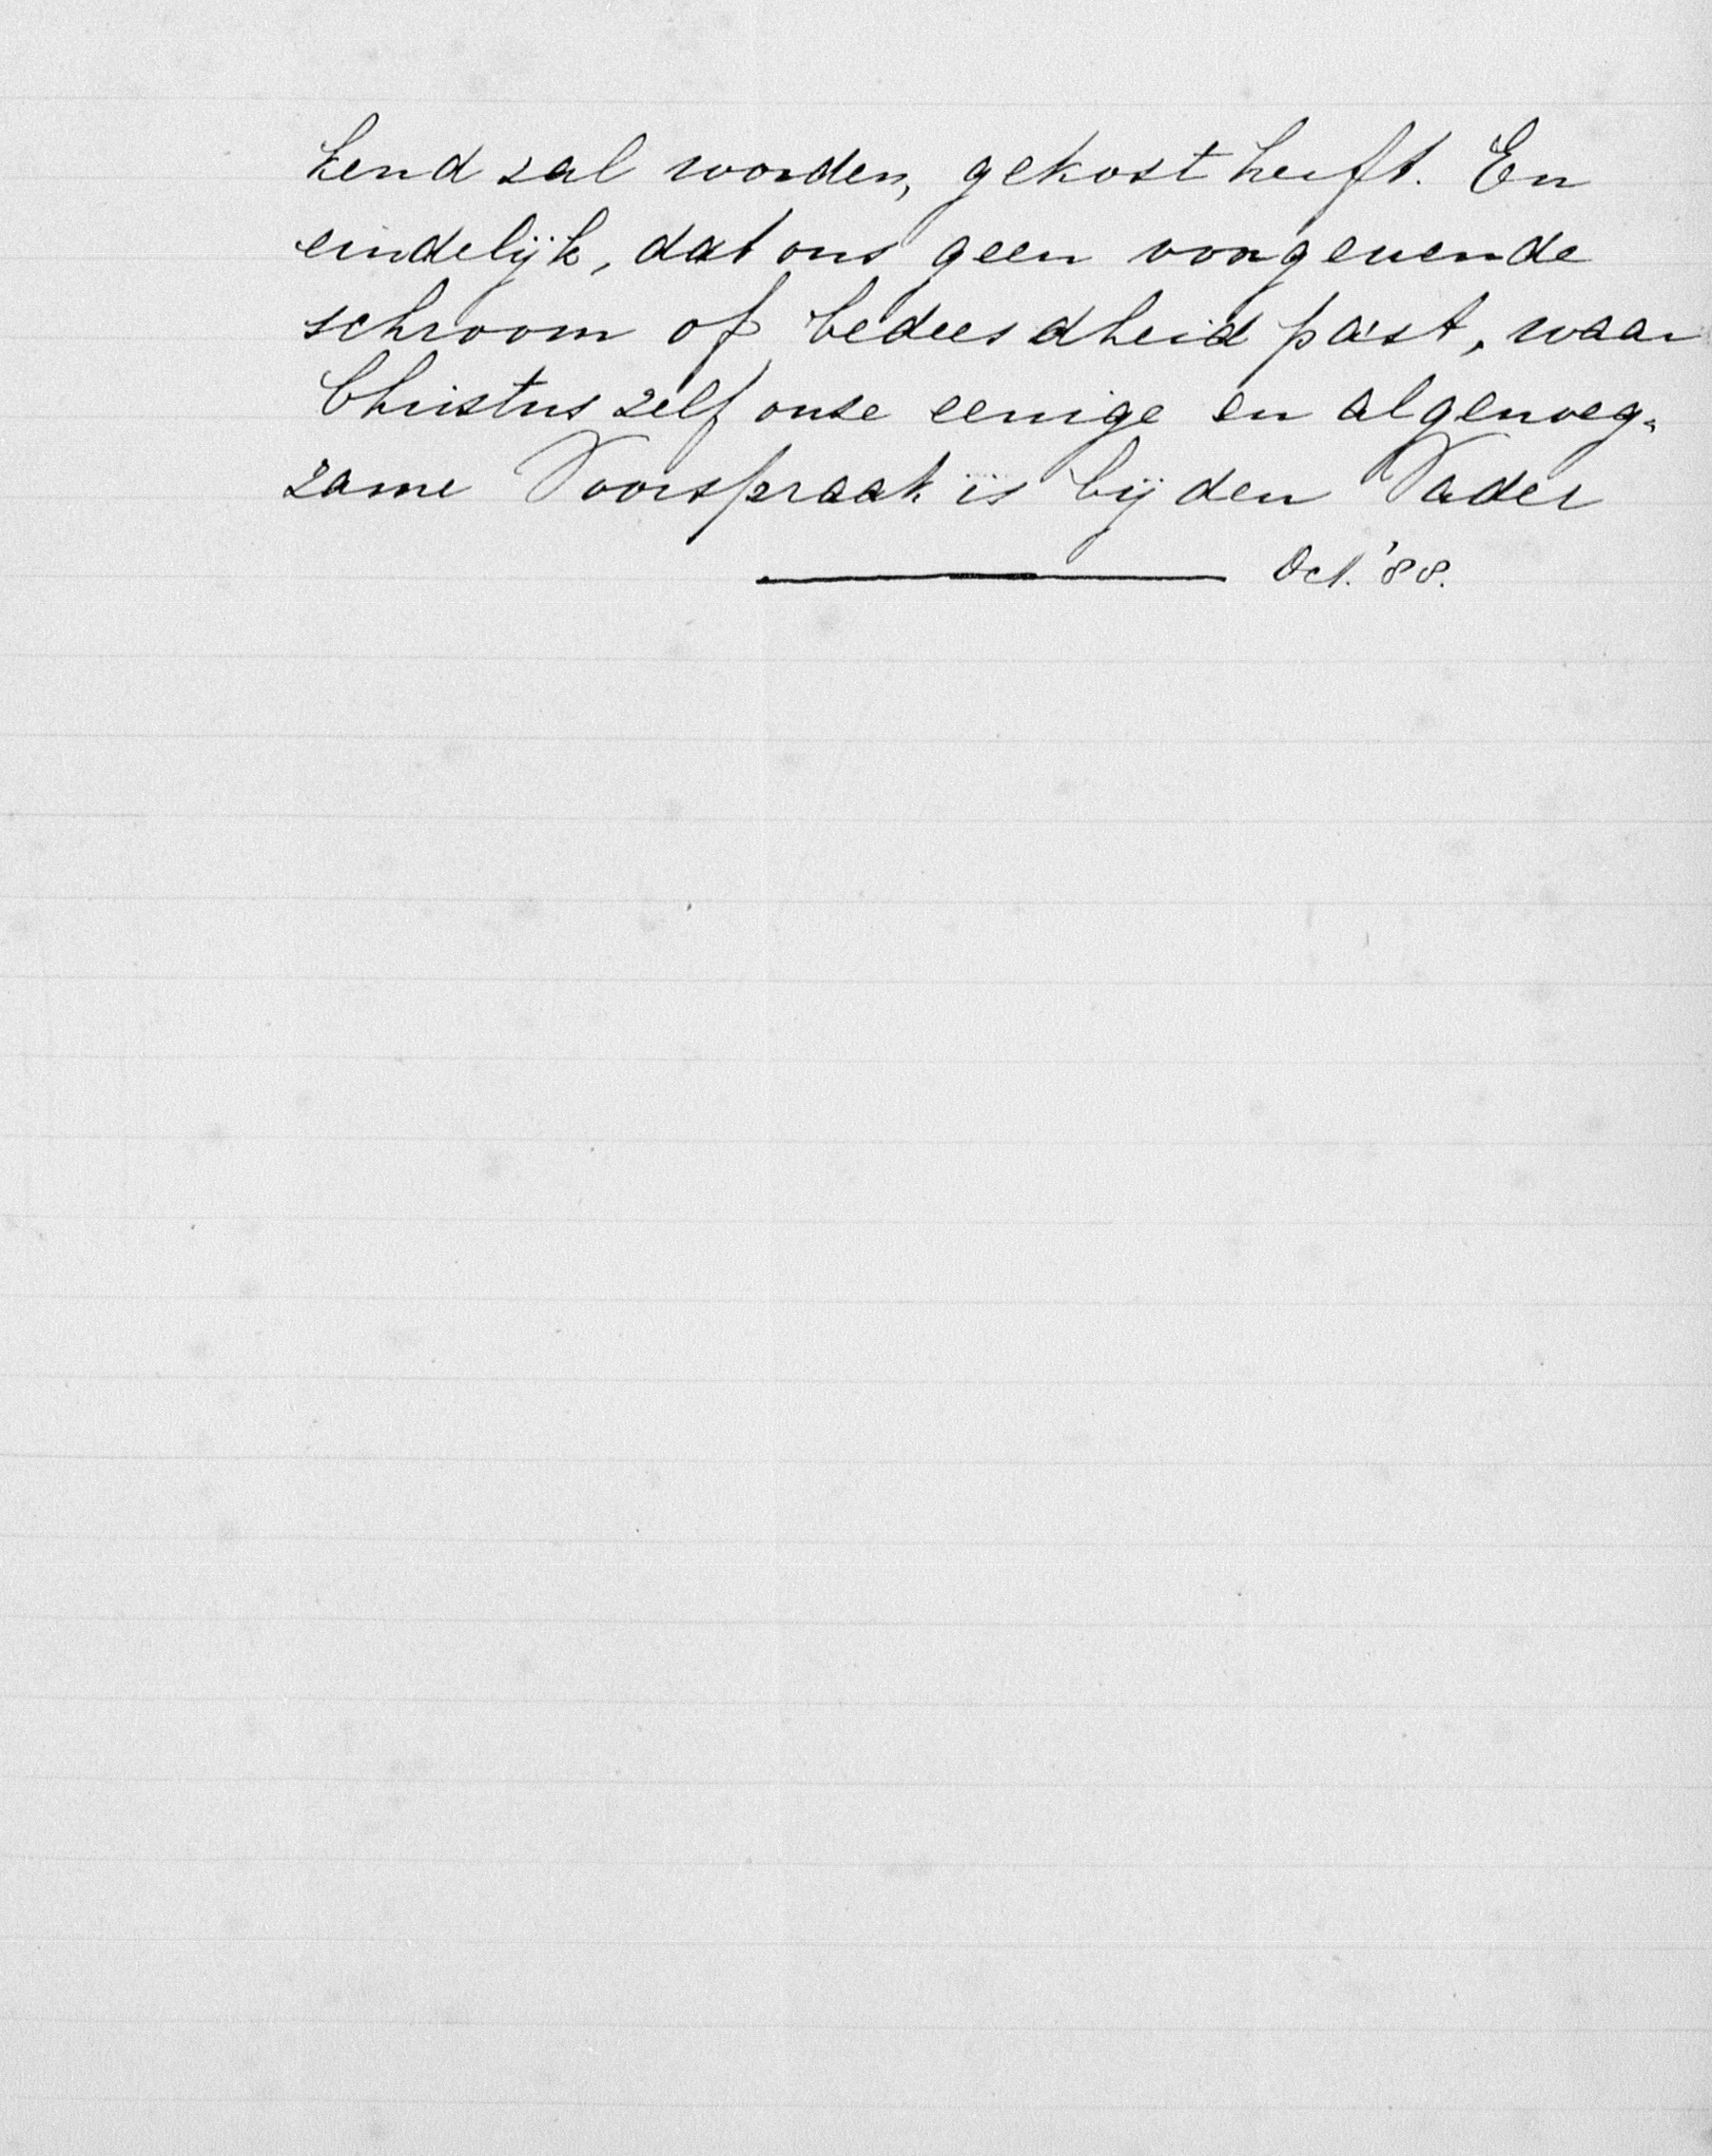 kend zal worden, gekost heeft. En
eindelijk, dat ons geen voorgevende
schroom of bedeesdheid past, waar
Christus zelf onze eenige en algenoeg-
zame Voorspraak is bij den Vader
Oct. '88.